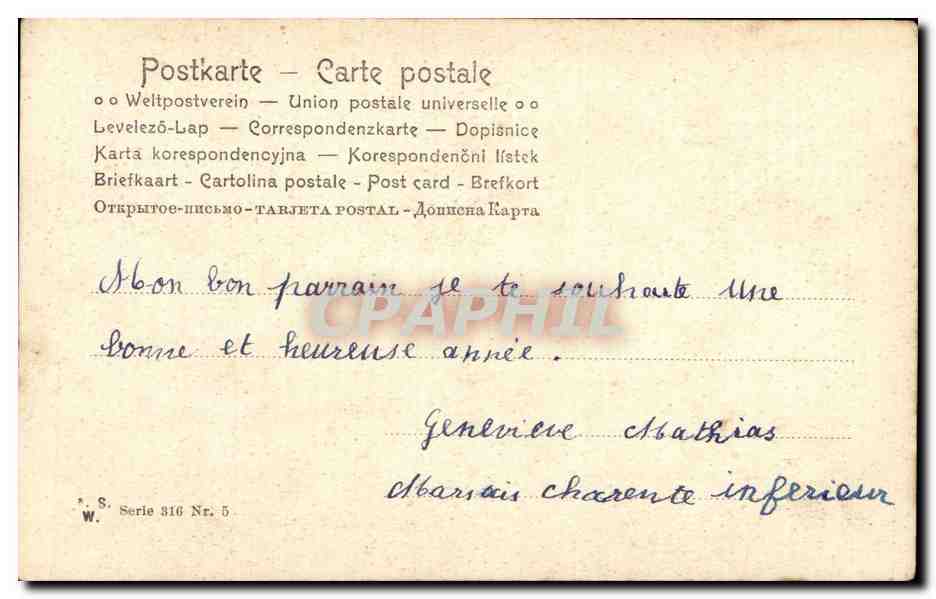 Postkarte – Carte postale
o o Weltpostverein — Union postale universelle o o
Levelező-Lap — Correspondenzkarte — Dopisnice
Karta korespondencyjna — Korespondenčni lístek
Briefkaart - Cartolina postale - Post card - Brefkort
Открытое-письмо-TARJETA POSTAL-Дописна Карта
Mon bon parrain je te souhaite une
CPAPHIL
bonne et heureuse année.
Geneviève Mathias
Marsais charente inferieur
S.
W. Serie 316 Nr. 5